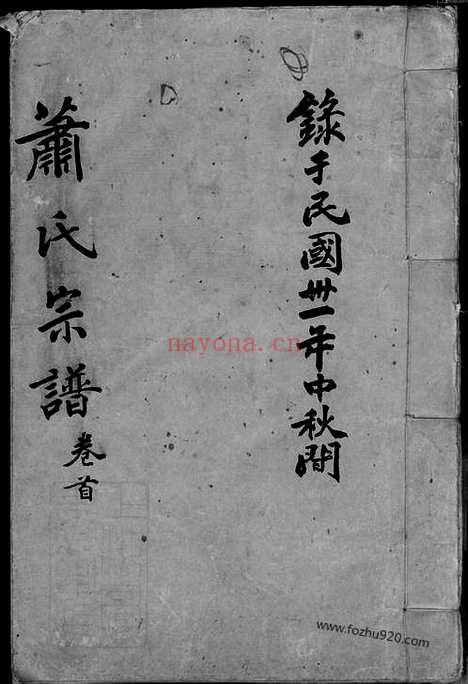 錄于民國卅一年中秋間
蕭氏宗譜
卷首
nayona.cn
www.fozhu920.com